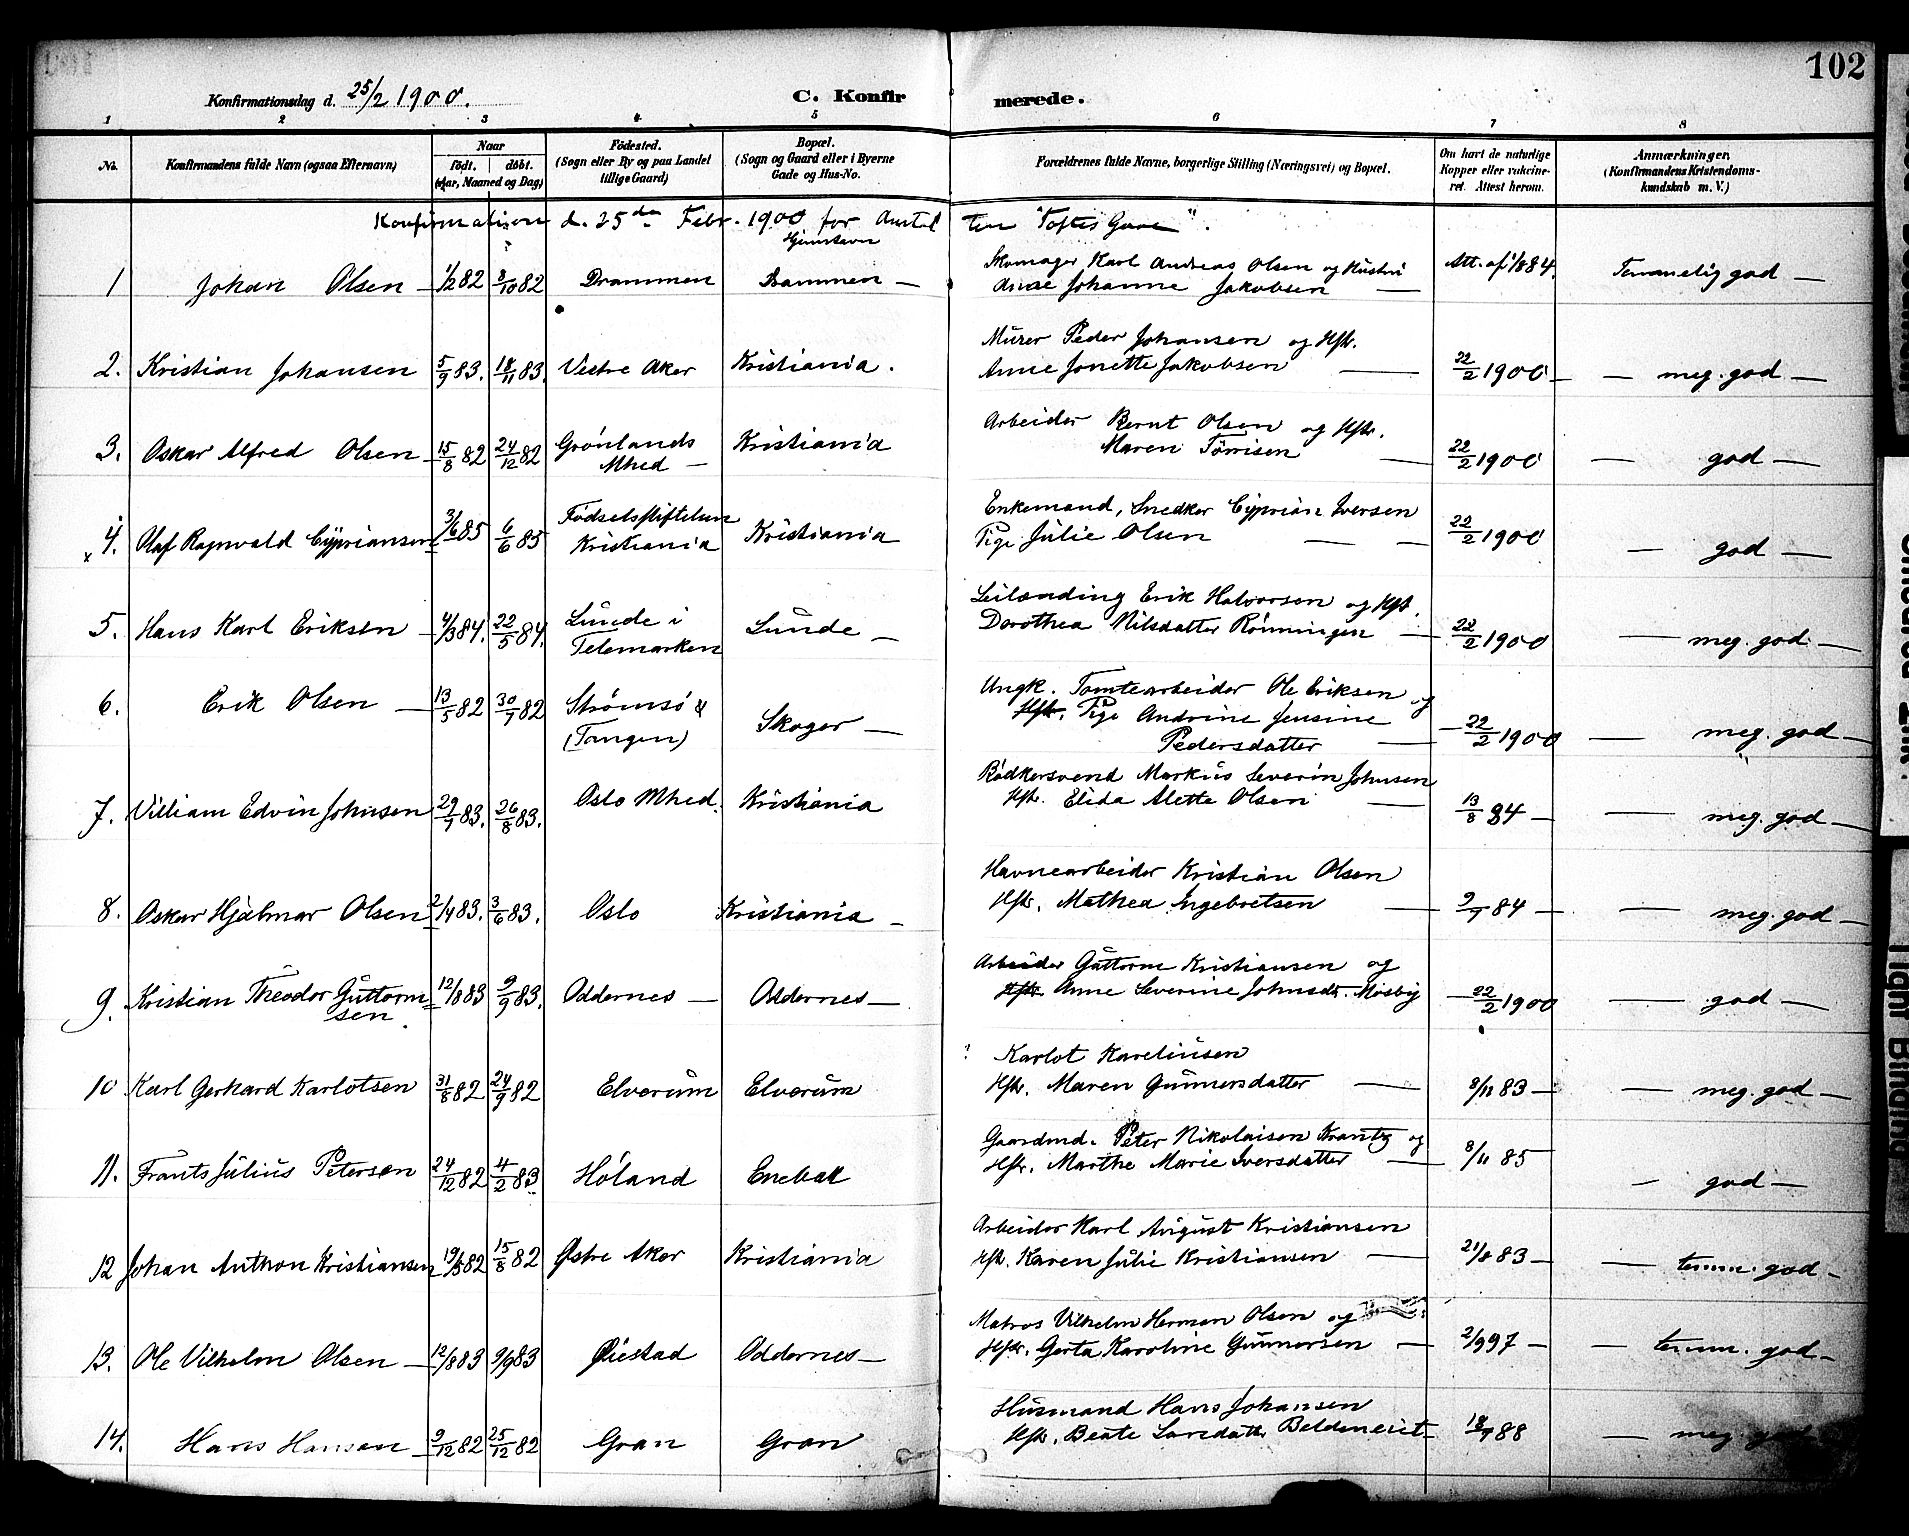 102
Konfirmationsdag d. 25/2 1900. C. Konfirmerede.
1 2 3 4 5 6 7 8
No. Konfirmandens fulde Navn (ogsaa Efternavn) Naar født. døbt. (Aar, Maaned og Dag) Fødested. (Sogn eller By og paa Landet tillige Gaard) Bopæl. (Sogn og Gaard eller i Byerne Gade og Hus-No. Forældrenes fulde Navne, borgerlige Stilling (Næringsvei) og Bopæl. Om havt de naturlige Kopper eller vakcineret. Attest herom. Anmærkninger. (Konfirmandens Kristendomskundskab m. V.)
Konfirmation d. 25de Febr. 1900 for Anstalten "Toftes Gave".
Hjemstavn
1 Johan Olsen 1/2 82 8/10 82 Drammen Drammen — Skomager Karl Andreas Olsen og Hustru
Anne Johanne Jakobsen — Att. af 1/8 84. Temmelig god —
2. Kristian Johansen 5/9 83. 18/11 83. Vestre Aker Kristiania. Murer Peder Johansen og Hstr.
Anne Jonette Jakobsen — 22/2 1900 — meg. god —
3. Oskar Alfred Olsen 15/8 82 24/12 82 Grønlands Mhed — Kristiania Arbeider Bernt Olsen og Hstr.
Maren Tørrisen — 22/2 1900 — god —
4. Olaf Ragnvald Cypriansen 3/6 85 6/6 85 Fødselsstiftelsen Kristiania Kristiania Enkemand, Snedker Cyprian Iversen
Pige Julie Olsen — — 22/2 1900 — god —
5. Hans Karl Eriksen — 4/3 84. 22/5 84. Lunde i Telemarken Lunde — Leilænding Erik Halvorsen og Hst.
Dorothea Nilsdatter Rønningen — 22/2 1900 — meg. god —
6. Erik Olsen — 13/5 82 30/7 82 Strømsø (Tangen) Skoger — Ungk. Tomtearbeider Ole Eriksen og
Hstr. Pige Andrine Jensine
Pedersdatter — 22/2 1900 — meg. god —
7. Villiam Edvin Johnsen 29/7 83. 26/8 83. Oslo Mhed. Kristiania Bødkersvend Markus Severin Johnsen
Hstr. Elida Alette Olsen — 13/8 84 — meg. god —
8. Oskar Hjalmar Olsen 2/4 83. 3/6 83. Oslo Kristiania — Havnearbeider Kristian Olsen
Hstr. Mathea Ingebretsen — 9/7 84 — meg. god —
9. Kristian Theodor Guttormsen 12/8 83 9/9 83. Oddernes — Oddernes — Arbeider Guttorm Kristiansen og
Hstr. Anne Severine Johnsdt. Mosby — 22/2 1900 — god —
10 Karl Gerhard Karlotsen 31/8 82 24/9 82 Elverum Elverum Karlot Karelinsen
Hstr. Maren Gunnersdatter — 8/11 83 — meg. god —
11. Frants Julius Petersen 24/12 82 4/2 83 Høland Enebak Gaardmd. Peter Nikolaisen Krantz og
Hstr. Marthe Marie Iversdatter — 8/11 85 — god —
12 Johan Anthon Kristiansen 19/5 82 15/8 82 Østre Aker Kristiania Arbeider Karl August Kristiansen
Hstr. Karen Julie Kristiansen — 21/8 83 — temm. god —
13. Ole Vilhelm Olsen — 12/8 83 9/9 83 Øiestad Oddernes — Matros Vilhelm Herman Olsen og
Hstr. Gerta Karoline Gunnersen — 2/9 97 — temm. god —
14. Hans Hansen 9/12 82 25/12 82 Gran Gran Husmand Hans Johansen
Hstr. Beate Larsdatter 18/7 88 — meg. god